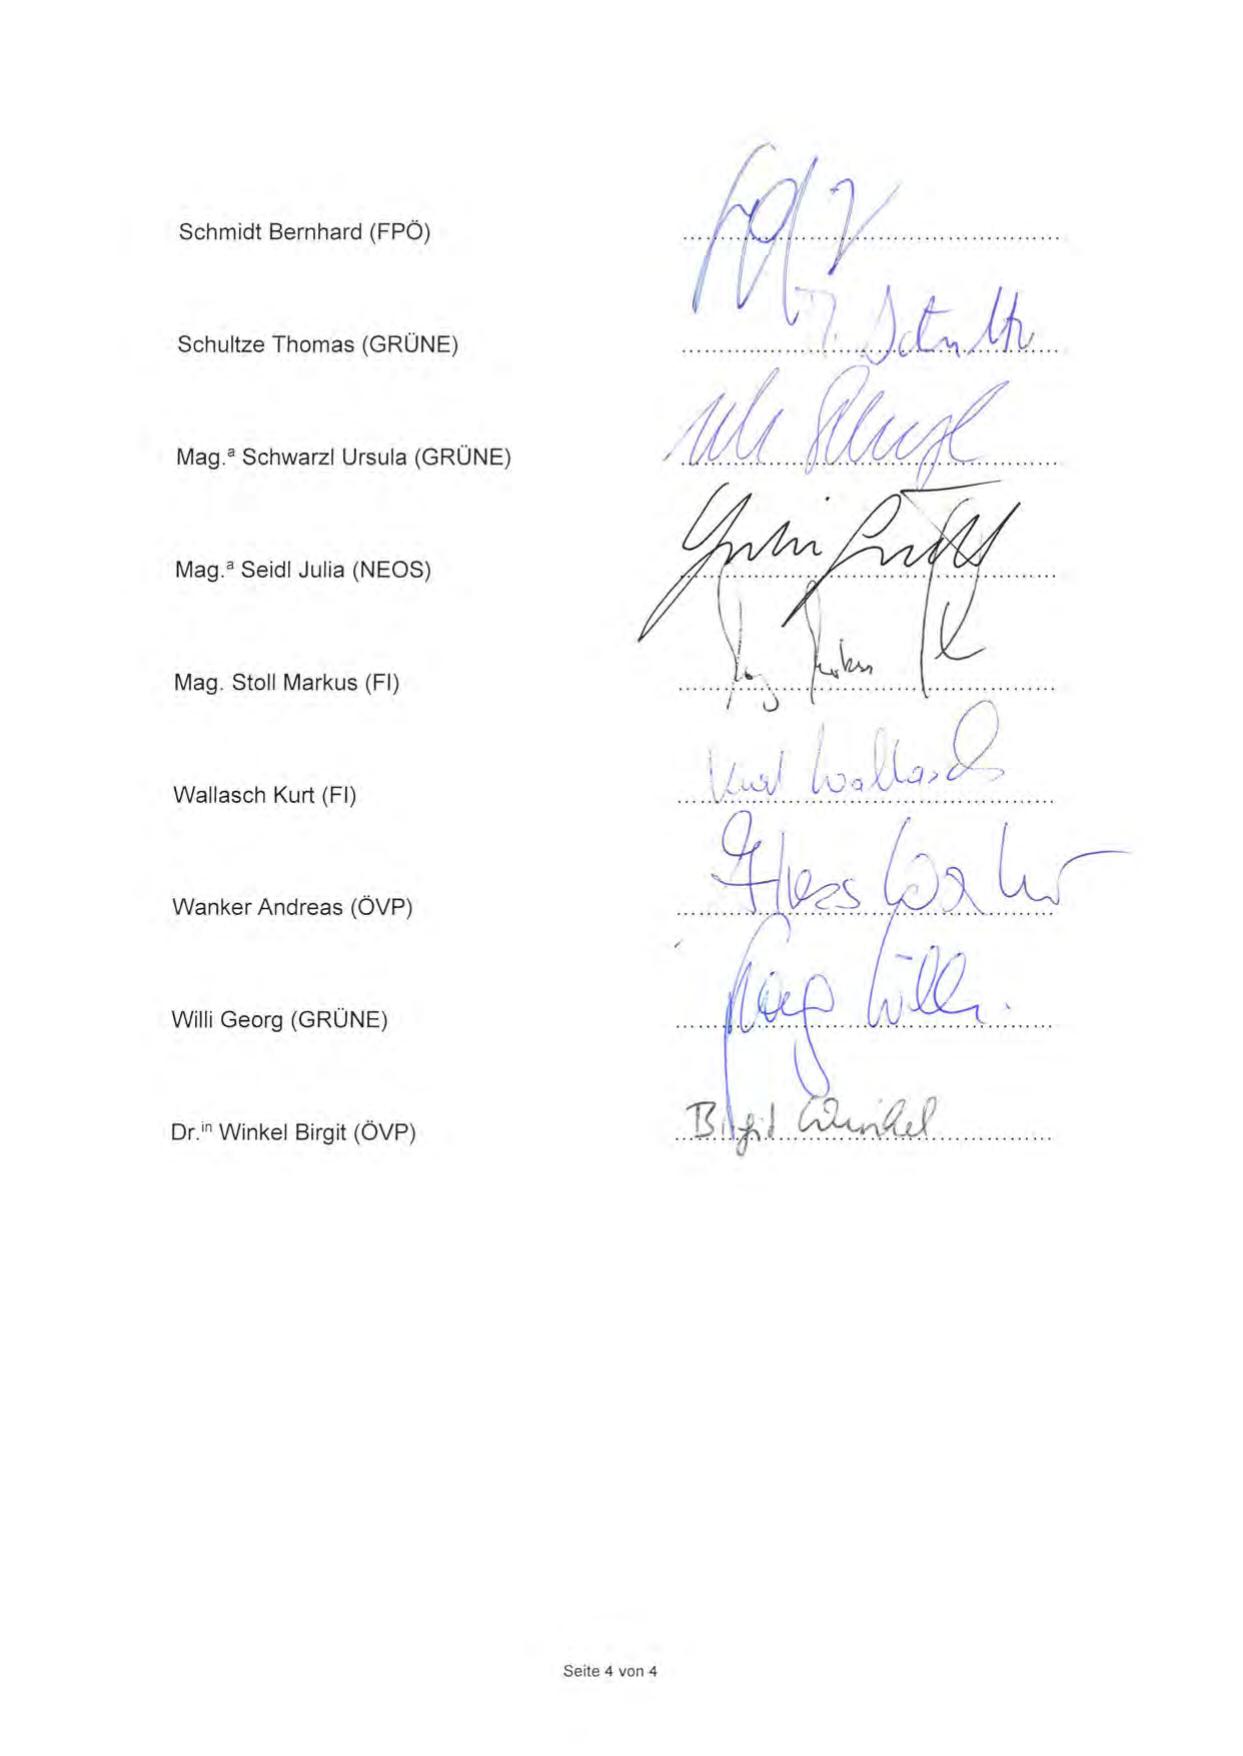 Schmidt Bernhard (FPÖ)
Schultze Thomas (GRÜNE) T. Schultz
Mag.ª Schwarzl Ursula (GRÜNE)
Mag.ª Seidl Julia (NEOS) Julia Seidl
Mag. Stoll Markus (FI) Mag. Markus
Wallasch Kurt (FI) Kurt Wallasch
Wanker Andreas (ÖVP)
Willi Georg (GRÜNE) Georg Willi
Dr.ⁱⁿ Winkel Birgit (ÖVP) Birgit Winkel
Seite 4 von 4